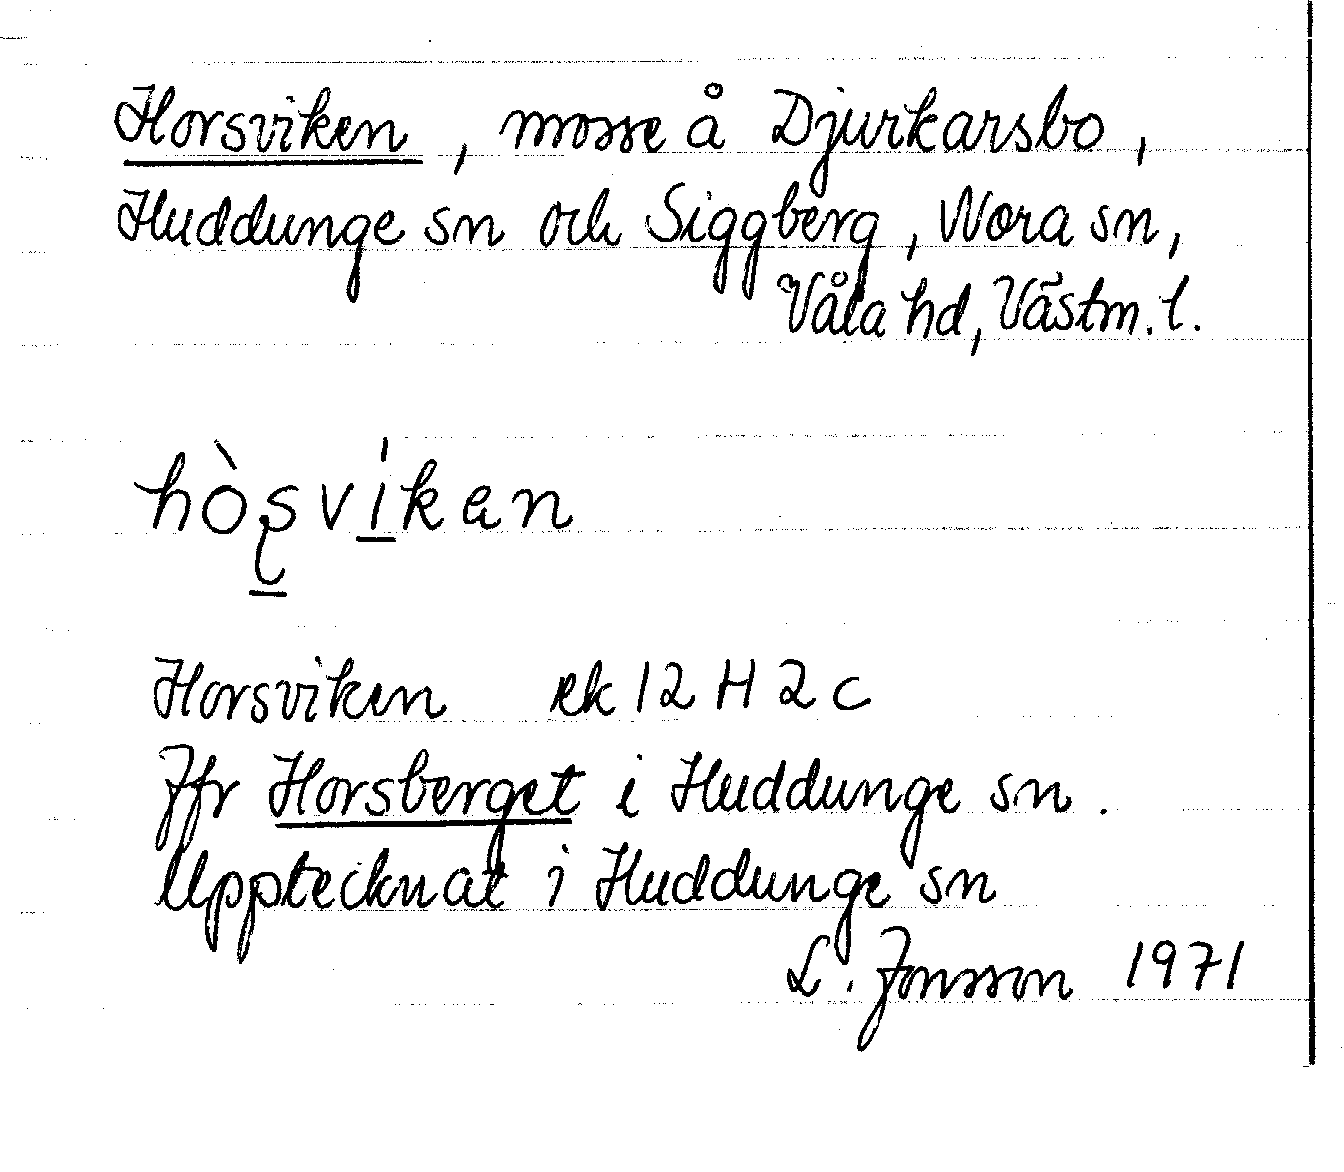 Horsviken, mosse å Djurkarsbo,
Huddunge sn och Siggberg, Nora sn,
Våla hd, Västm. l.
hòʂvíkan
Horsviken ek 12 H 2 c
Jfr Horsberget i Huddunge sn.
Upptecknat i Huddunge sn
L. Jonsson 1971